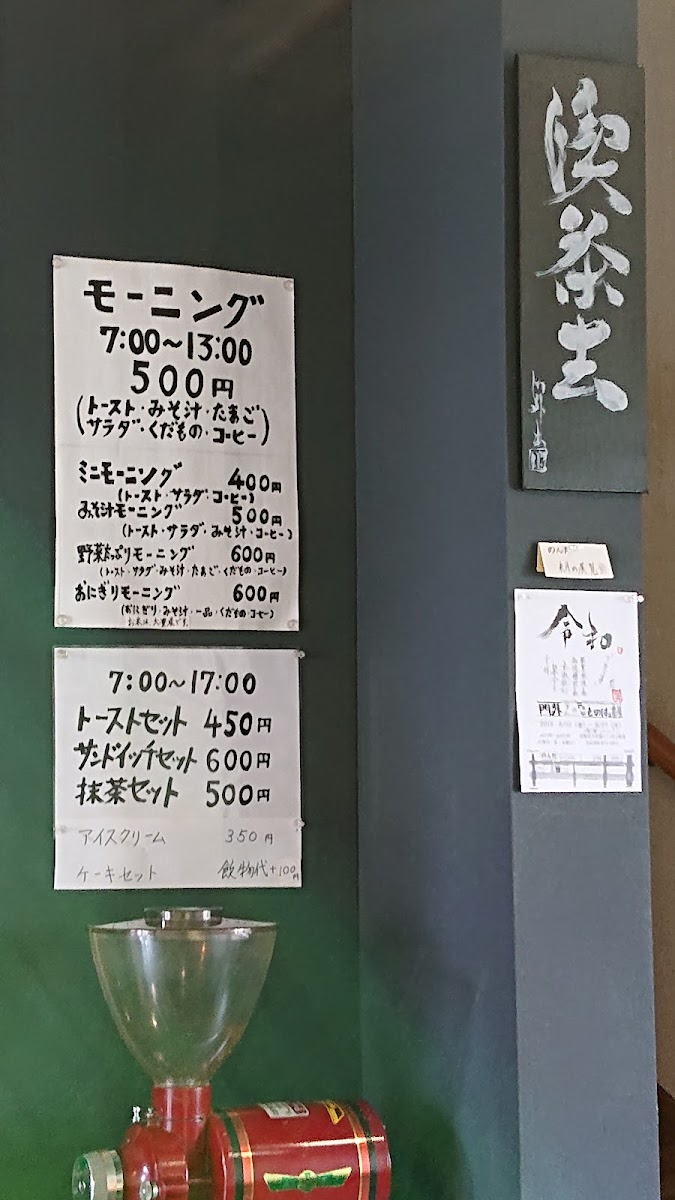 モーニング
7:00～13:00
500円
(トースト・みそ汁・たまご
サラダ・くだもの・コーヒー)
ミニモーニング 400円
(トースト・サラダ・コーヒー)
みそ汁モーニング 500円
(トースト・サラダ・みそ汁・コーヒー)
野菜たっぷりモーニング 600円
(トースト・サラダ・みそ汁・たまご・くだもの・コーヒー)
おにぎりモーニング 600円
(おにぎり・みそ汁・一品・くだもの・コーヒー)
7:00～17:00
トーストセット 450円
サンドイッチセット 600円
抹茶セット 500円
アイスクリーム 350円
ケーキセット 飲物代+100円
喫茶去
令和